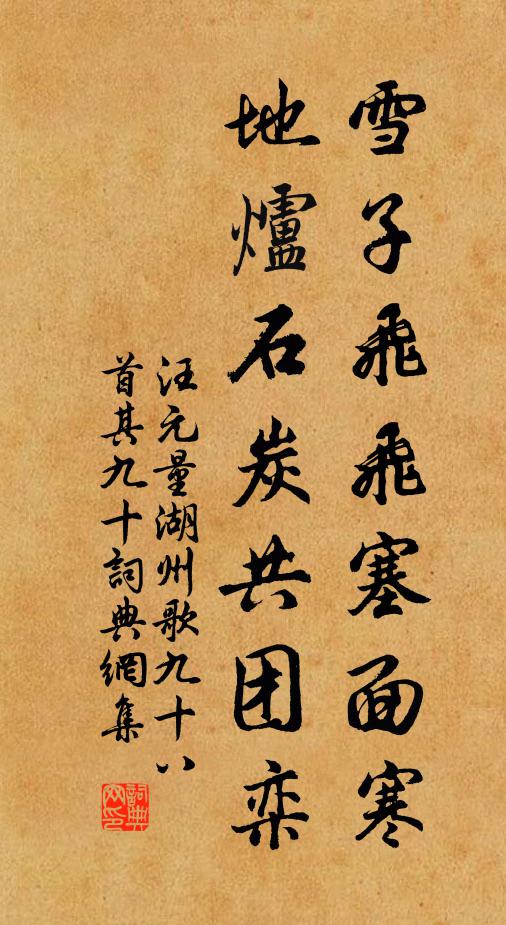 雪子飛飛塞面寒
地爐石炭共团栾
汪元量湖州歌九十八
首其九十詞典網集
詞典網印